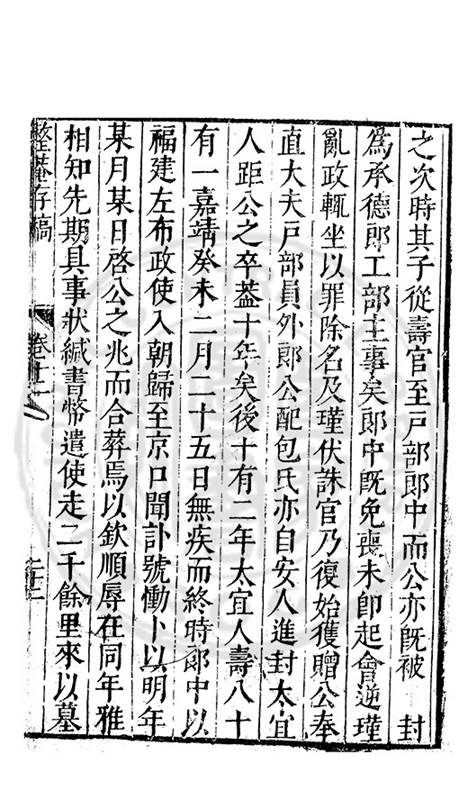 之次時其子從壽官至戸部郎中而公亦旣被　封
爲承德郎工部主事矣郎中旣免喪未卽起會逆瑾
亂政輒坐以罪除名及瑾伏誅官乃復始獲贈公奉
直大夫戸部員外郎公配包氏亦自安人進封太宜
人距公之卒葢十年矣後十有二年太宜人壽八十
有一嘉靖癸未二月二十五日無疾而終時郎中以
福建左布政使入朝歸至京口聞訃號慟卜以明年
某月某日啓公之兆而合葬焉以欽順辱在同年雅
相知先期具事狀緘書幣遣使走二千餘里來以墓
整菴存稿
卷十二
二十二